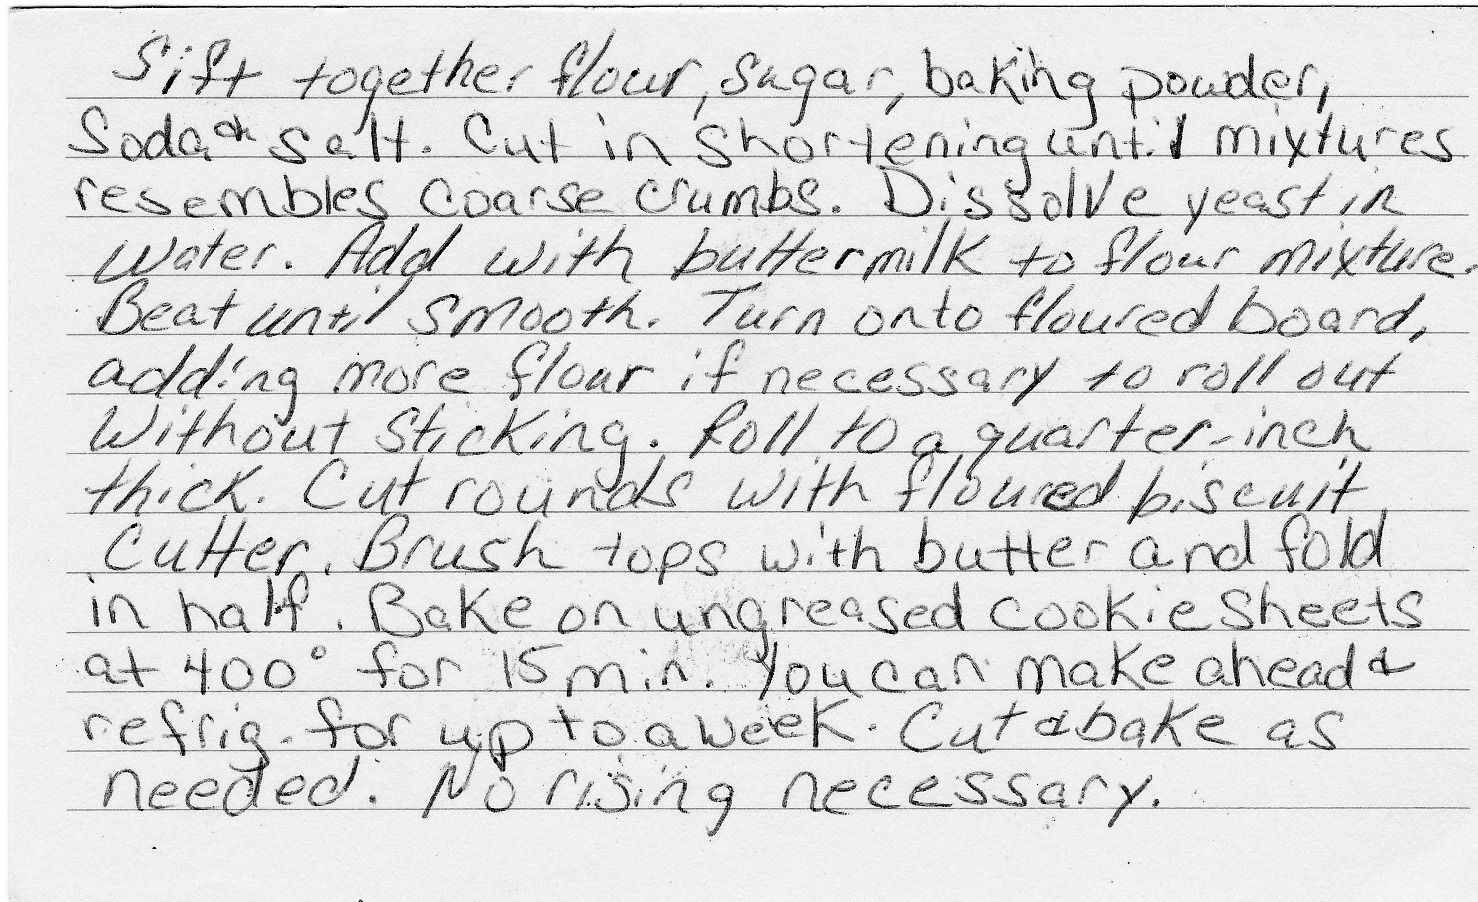 Sift together flour, sugar, baking powder,
Soda & salt. Cut in shortening until mixtures
resembles coarse crumbs. Dissolve yeast in
water. Add with buttermilk to flour mixture.
Beat until smooth. Turn onto floured board,
adding more flour if necessary to roll out
without sticking. Roll to a quarter-inch
thick. Cut rounds with floured biscuit
Cutter. Brush tops with butter and fold
in half. Bake on ungreased cookie sheets
at 400° for 15 min. You can make ahead &
refrig. for up to a week. Cut & bake as
needed. No rising necessary.